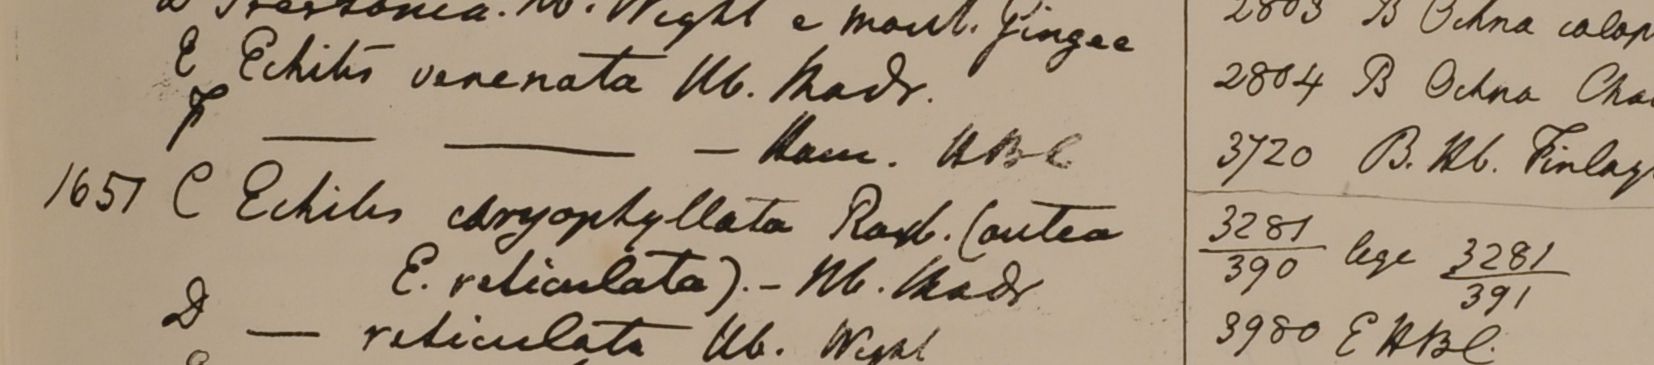 Hb. Wight e mont. Gingee
E Echites venenata Hb. Madr.
F — — — Ham. HBC
1651 C Echites caryophyllata Roxb. (antea
E. reticulata). – Hb. Madr
D — reticulata Hb. Wight
2803 B Ochna
2804 B Ochna
3720 B. Hb.
3281/390 lege 3281/391
3980 E HBC.